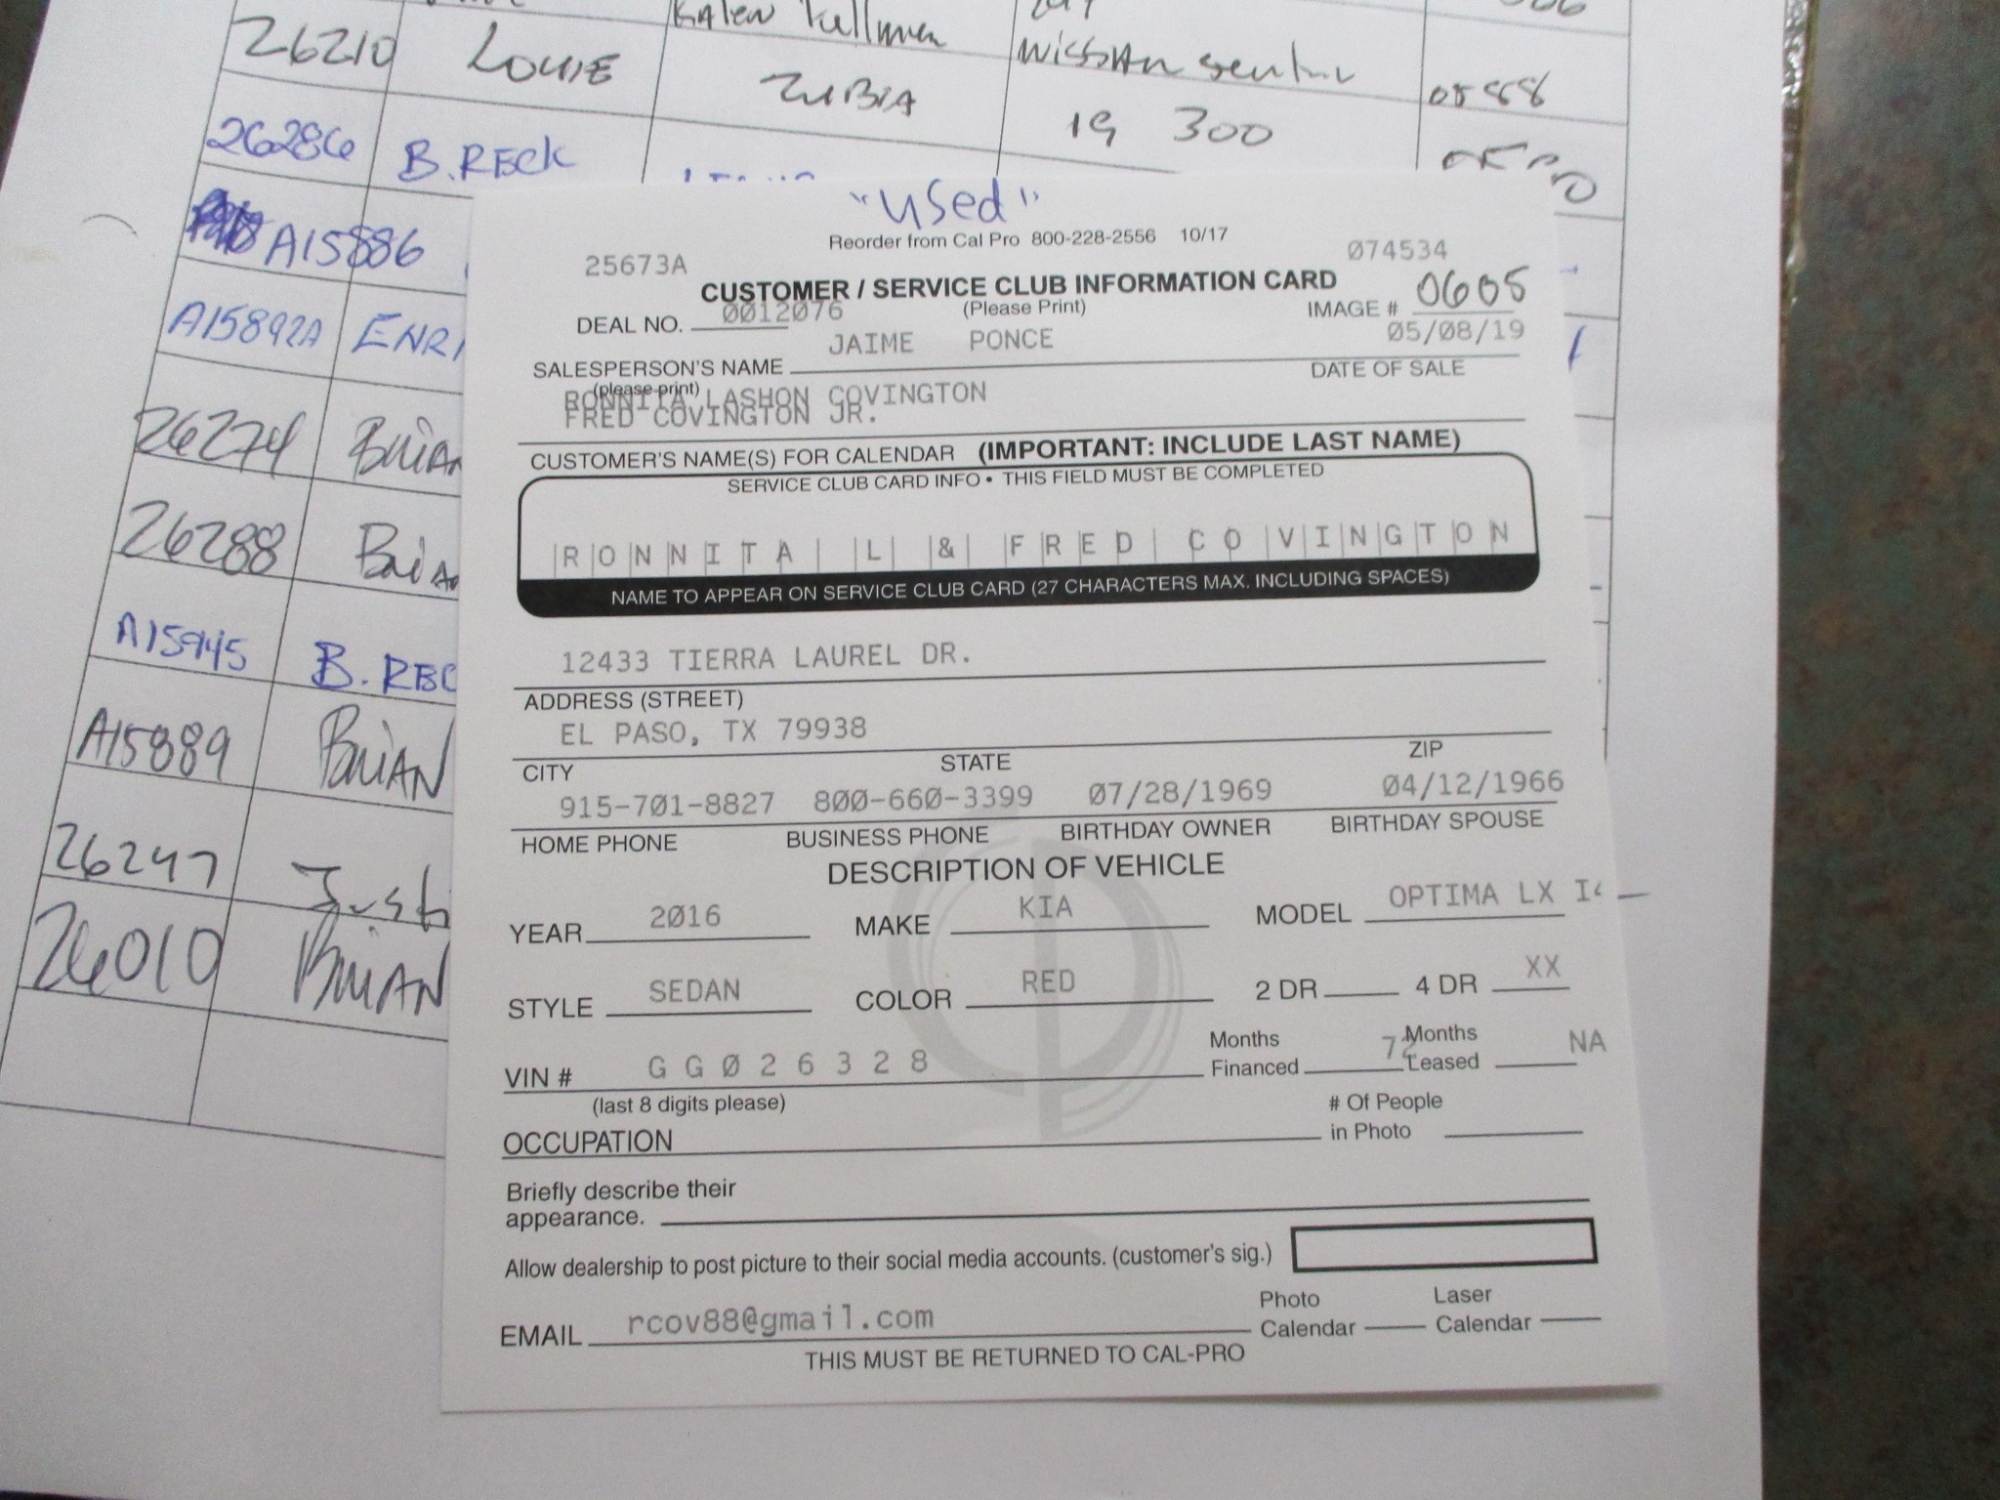 26210 LOUIE Kalen Tullman Nissan Sentra 0588
26286 B. RECK ZUBIA 19 300
A15886
A15892A ENRI
26274 BRIAN
26288 BRIAN
A15945 B. REC
A15889 BRIAN
26247 Justi
26010 BRIAN
"USed"
Reorder from Cal Pro 800-228-2556 10/17
25673A 074534
CUSTOMER / SERVICE CLUB INFORMATION CARD
DEAL NO. 0012076 (Please Print) IMAGE # 0605
JAIME PONCE 05/08/19
SALESPERSON'S NAME DATE OF SALE
(please print)
RONNITA LASHON COVINGTON
FRED COVINGTON JR.
CUSTOMER'S NAME(S) FOR CALENDAR (IMPORTANT: INCLUDE LAST NAME)
SERVICE CLUB CARD INFO • THIS FIELD MUST BE COMPLETED
RONNITA L & FRED COVINGTON
NAME TO APPEAR ON SERVICE CLUB CARD (27 CHARACTERS MAX. INCLUDING SPACES)
12433 TIERRA LAUREL DR.
ADDRESS (STREET)
EL PASO, TX 79938
CITY STATE ZIP
915-701-8827 800-660-3399 07/28/1969 04/12/1966
HOME PHONE BUSINESS PHONE BIRTHDAY OWNER BIRTHDAY SPOUSE
DESCRIPTION OF VEHICLE
YEAR 2016 MAKE KIA MODEL OPTIMA LX
STYLE SEDAN COLOR RED 2 DR 4 DR XX
VIN # G G 0 2 6 3 2 8 Months Financed 72 Months Leased NA
(last 8 digits please)
OCCUPATION # Of People in Photo
Briefly describe their
appearance.
Allow dealership to post picture to their social media accounts. (customer's sig.)
EMAIL rcov88@gmail.com Photo Calendar Laser Calendar
THIS MUST BE RETURNED TO CAL-PRO